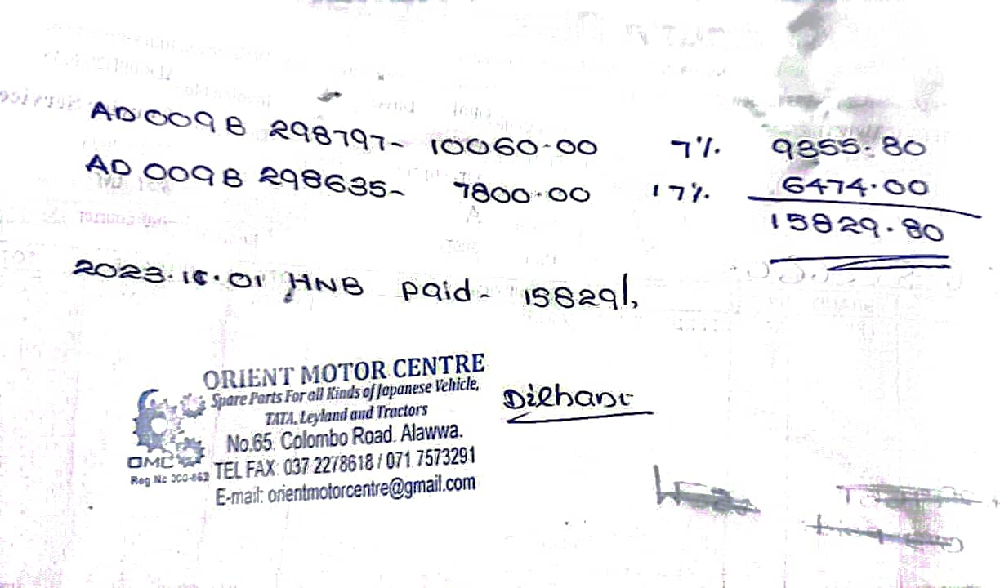 AD 009B 298797- 10060.00 7% 9355.80
AD 009B 298635- 7800.00 17% 6474.00
15829.80
HNB paid- 15829/,
ORIENT MOTOR CENTRE
Spare Parts For all Kinds of Japanese Vehicle,
TATA, Leyland and Tractors
No.65, Colombo Road, Alawwa.
OMC
TEL FAX: 037 2278618 / 071 7573291
Reg No
E-mail: orientmotorcentre@gmail.com
Dilhani